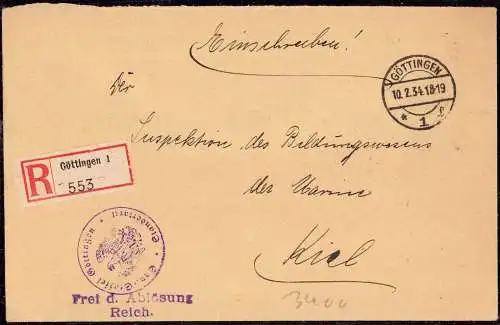 Einschreiben!
GÖTTINGEN
10.2.34.18-19
* 1 g
Der
Inspektion des Bildungswesens
der Marine
Kiel
R
Göttingen 1
553
Göttingen
Frei d. Ablösung
Reich.
3400